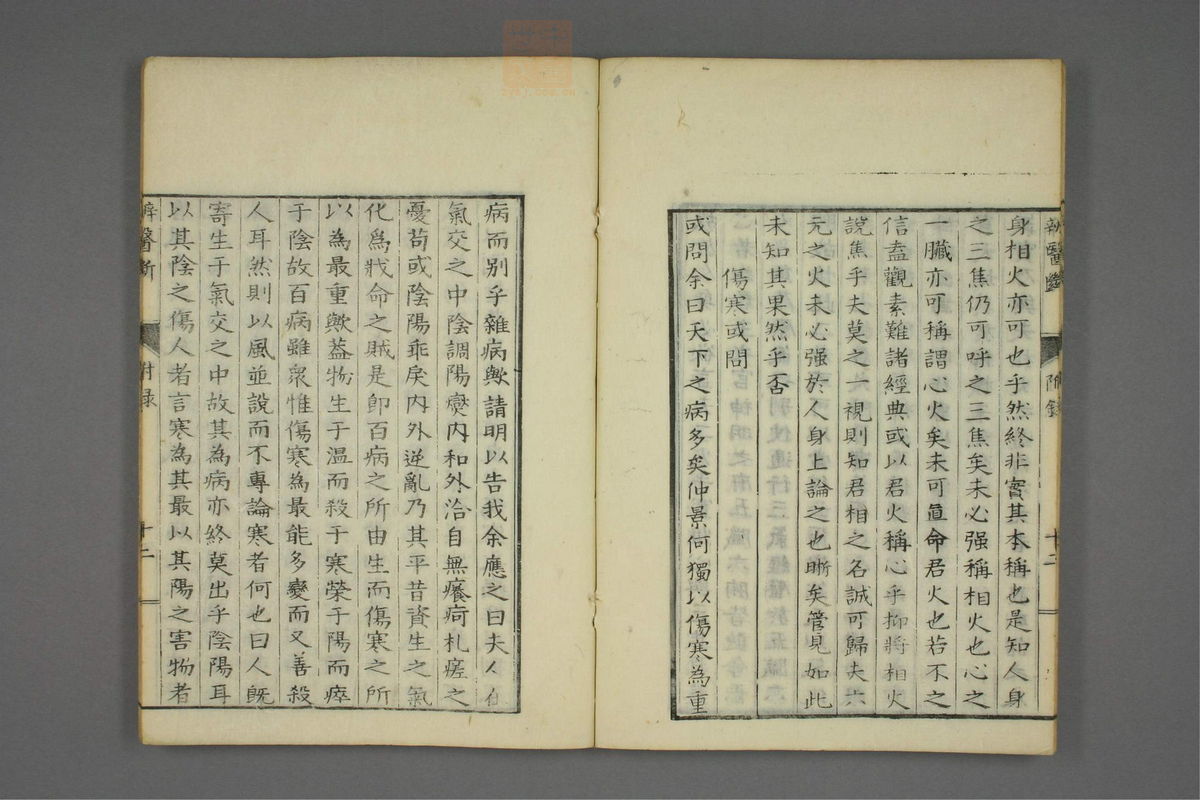 身相火亦可也乎然終非實其本稱也是知人身
之三焦仍可呼之三焦矣未必强稱相火也心之
一臟亦可稱謂心火矣未可直命君火也若不之
信盍觀素難諸經典或以君火稱心乎抑將相火
說焦乎夫莫之一視則知君相之名誠可歸夫六
元之火未必强於人身上論之也晣矣管見如此
未知其果然乎否
傷寒或問
或問余曰天下之病多矣仲景何獨以傷寒為重
附錄
十二
病而别乎雜病歟請明以告我余應之曰夫人在
氣交之中陰調陽燮内和外洽自無癢疴札瘥之
憂苟或陰陽乖戾内外逆亂乃其平昔資生之氣
化爲戕命之賊是卽百病之所由生而傷寒之所
以為最重歟蓋物生于溫而殺于寒榮于陽而瘁
于陰故百病雖衆惟傷寒為最能多變而又善殺
人耳然則以風並說而不專論寒者何也曰人旣
寄生于氣交之中故其為病亦終莫出乎陰陽耳
以其陰之傷人者言寒為其最以其陽之害物者
醫斷
附錄
十二